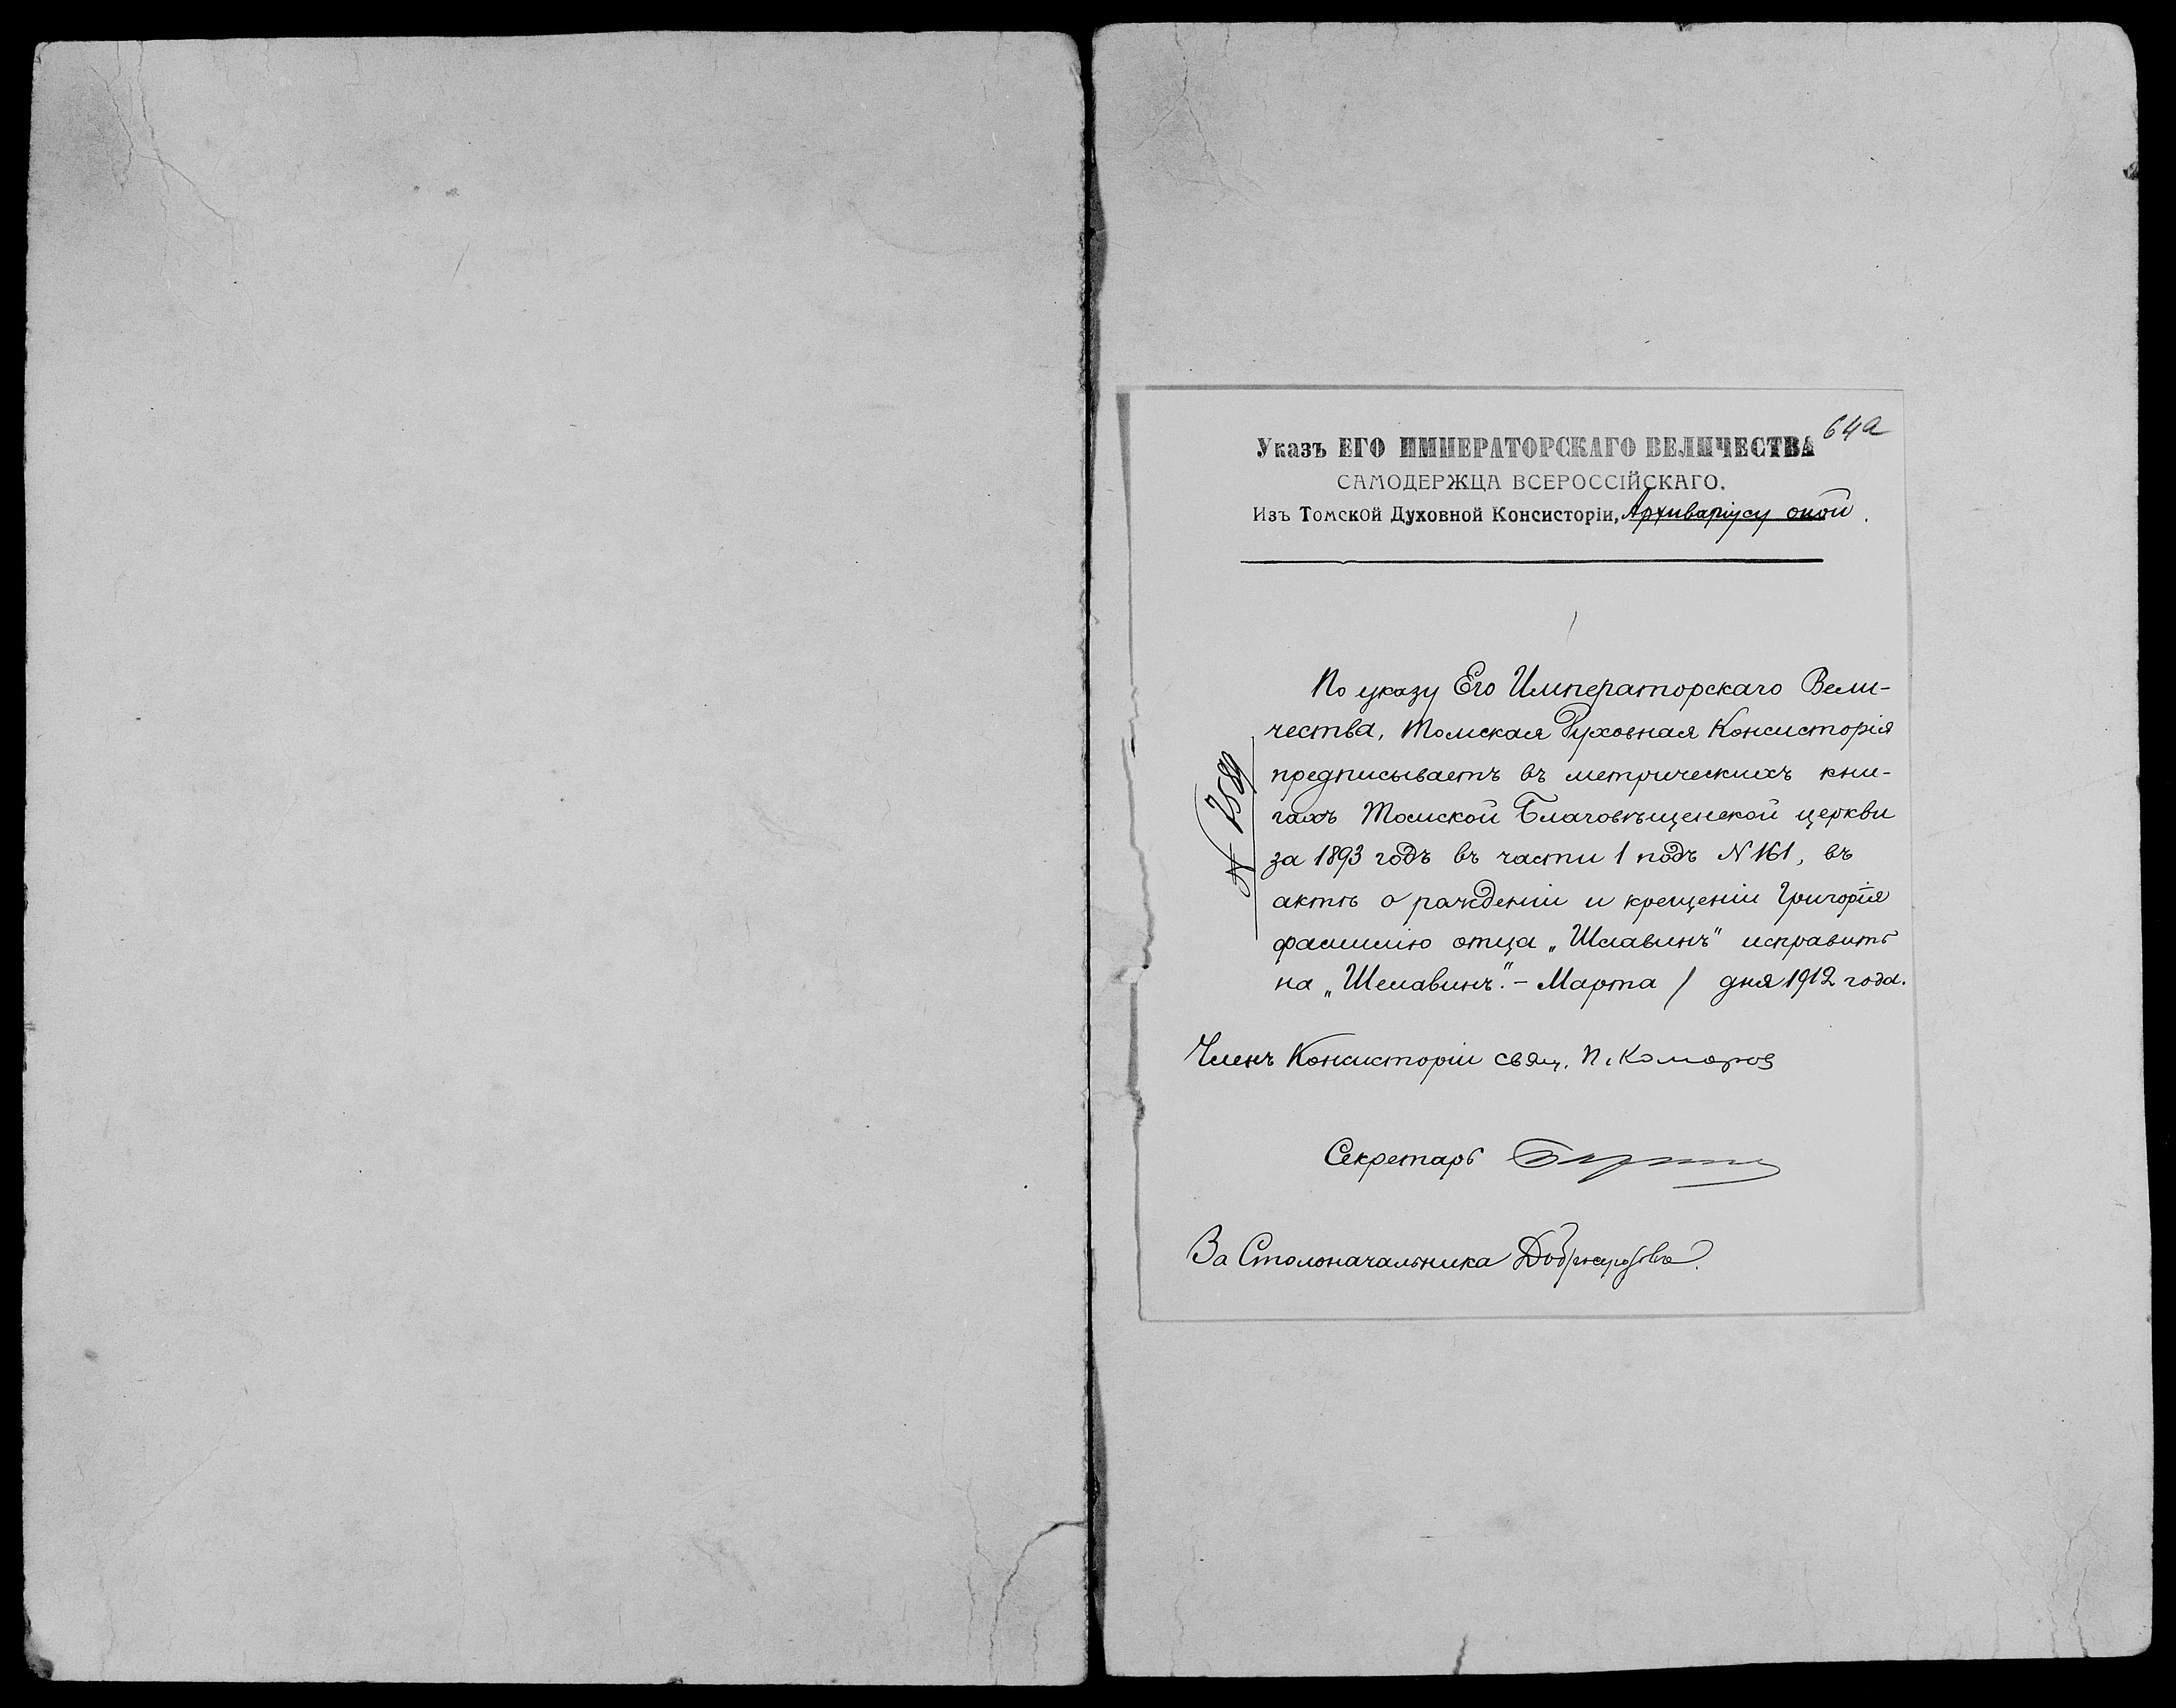 64а
Указъ ЕГО ИМПЕРАТОРСКАГО ВЕЛИЧЕСТВА
САМОДЕРЖЦА ВСЕРОССІЙСКАГО.
Изъ Томской Духовной Консисторіи, Архиваріусу оной.
По указу Его Императорскаго Вели-
чества, Томская Духовная Консисторія
предписываетъ въ метрическихъ кни-
гахъ Томской Благовѣщенской церкви
за 1893 годъ въ части 1 подъ N 161, въ
актѣ о рожденіи и крещеніи Григорія
фамилію отца „Шлавинъ" исправить
на „Шелавинъ". - Марта / дня 1912 года.
N 7589
Членъ Консисторіи свящ. П. Комаров
Секретарь
За Столоначальника